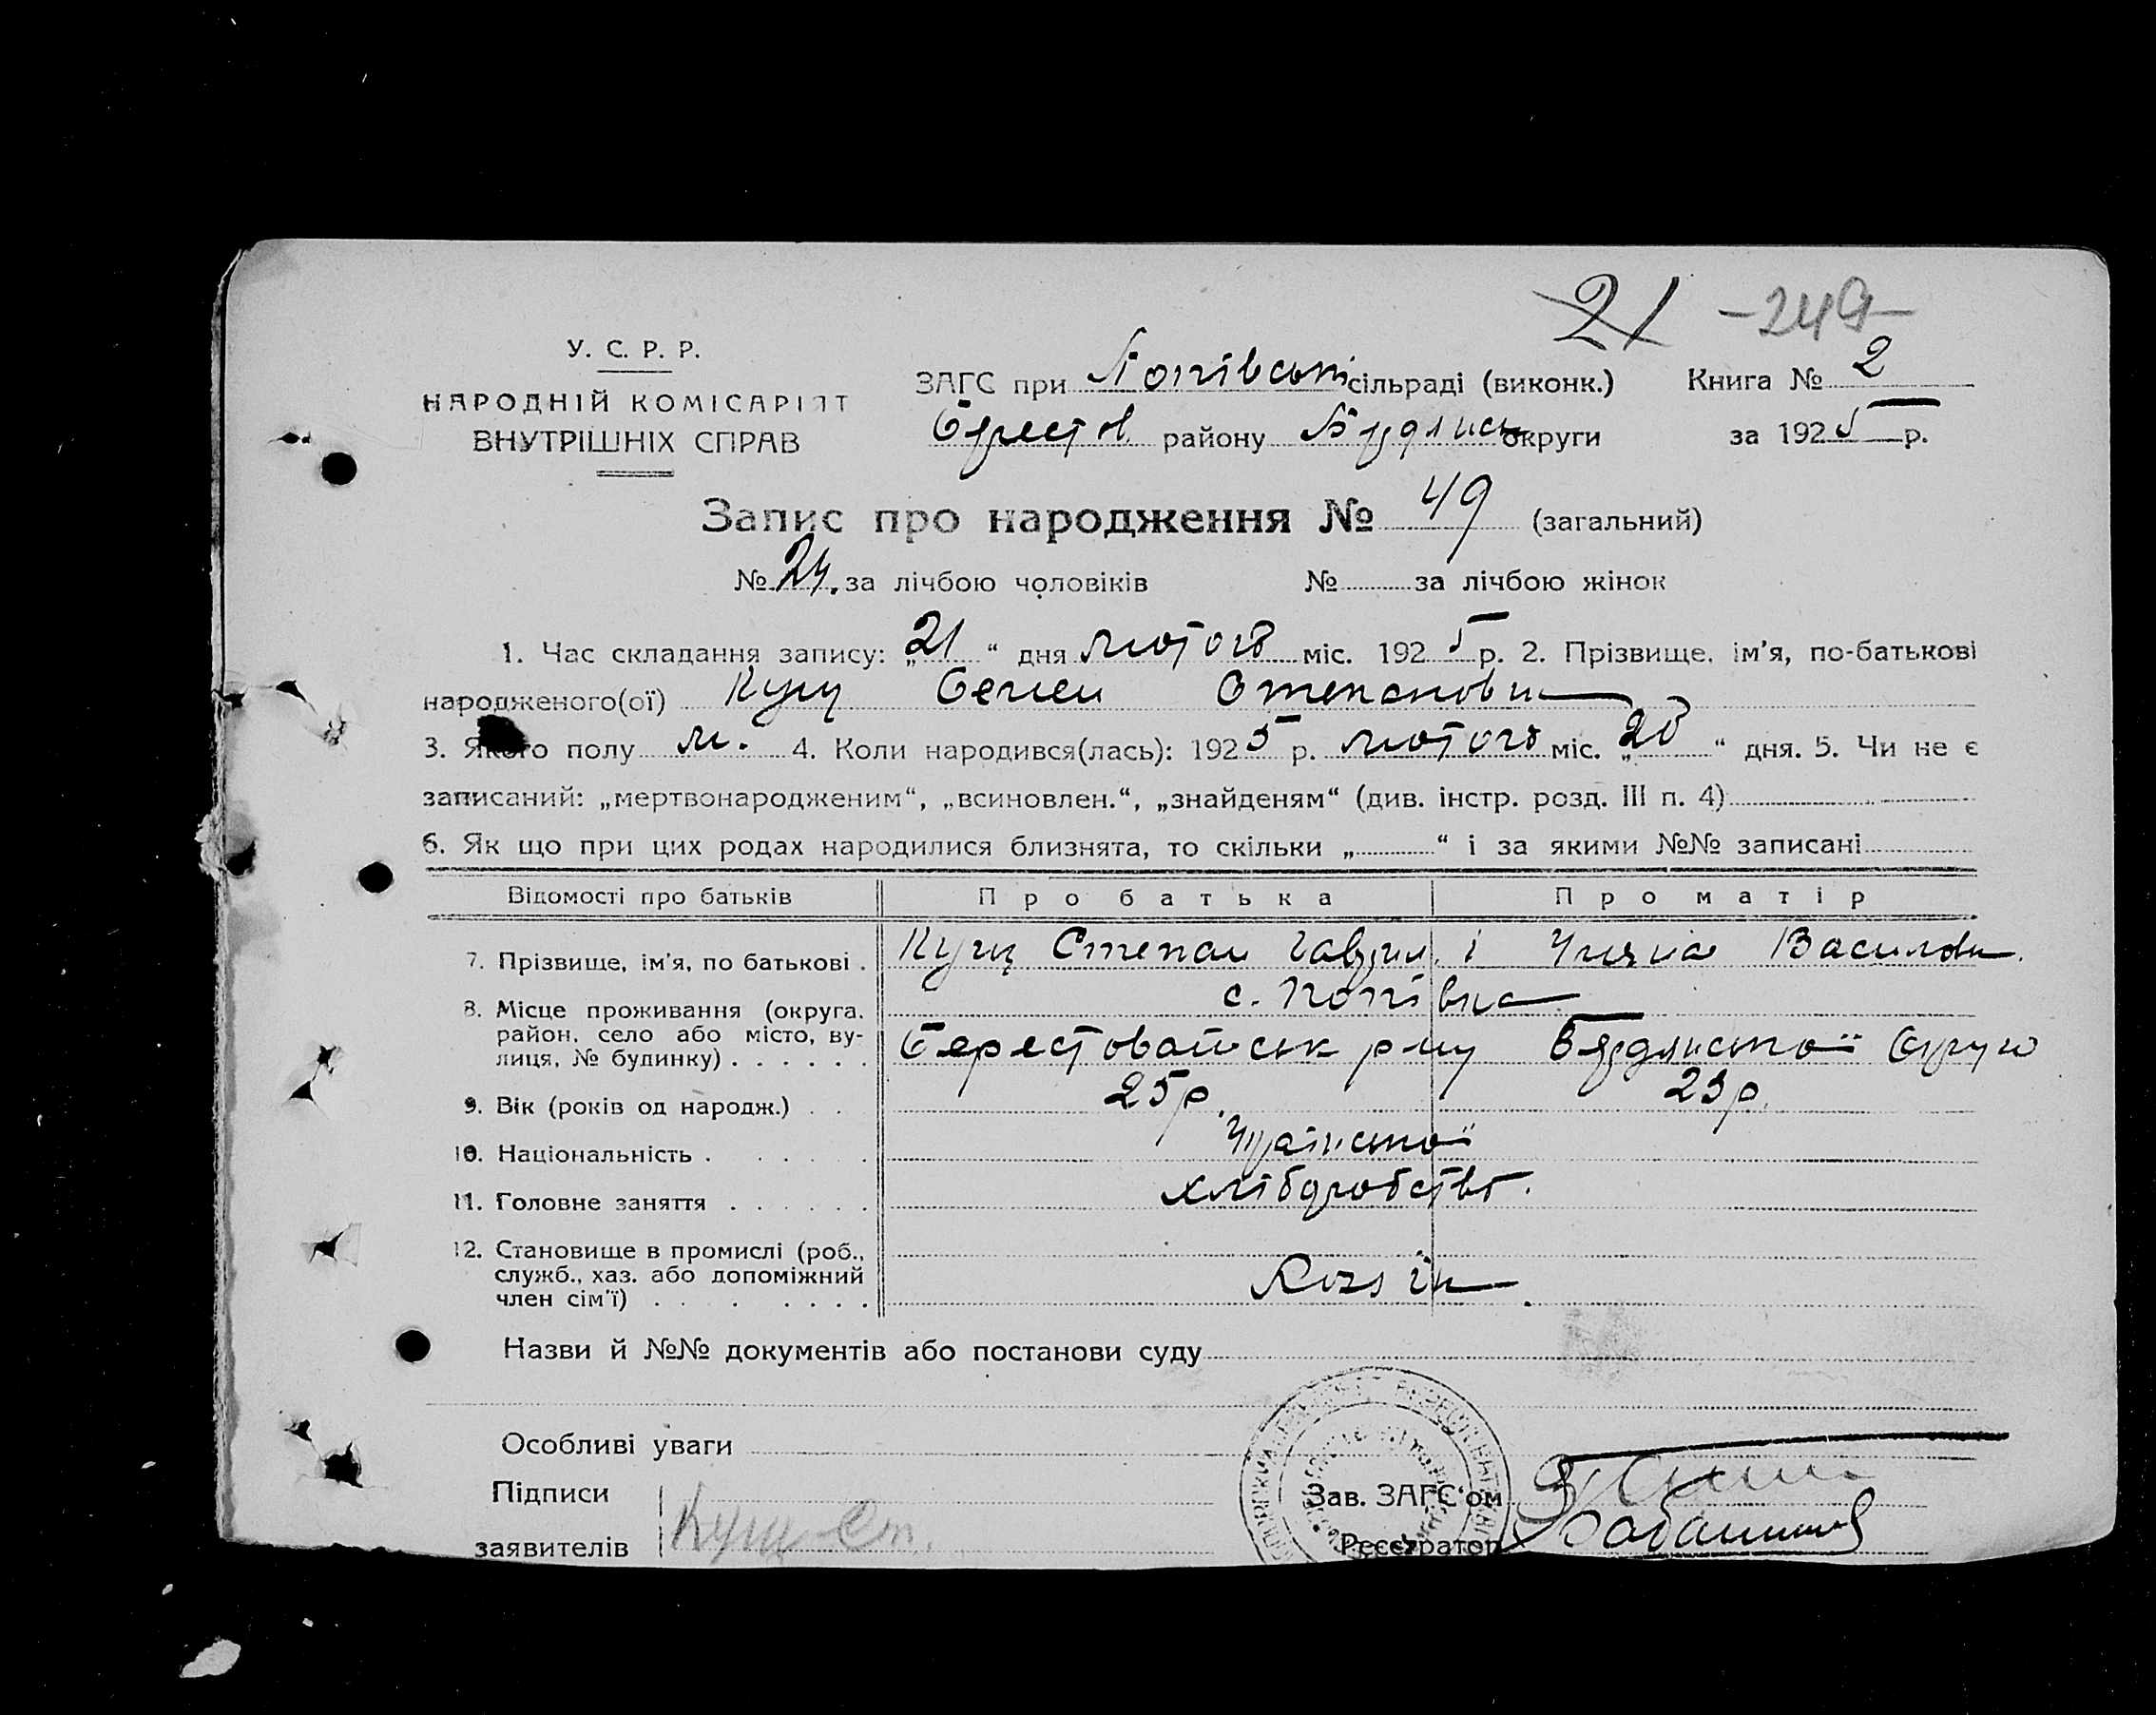 21 -249-
У. С. Р. Р.
НАРОДНІЙ КОМІСАРІЯТ
ВНУТРІШНІХ СПРАВ
ЗАГС при Попівській сільраді (виконк.) Книга № 2
Берестов. району Бердянськ округи за 1925 р.
Запис про народження № 49 (загальний)
№ 24. за лічбою чоловіків № за лічбою жінок
1. Час складання запису: „21“ дня лютого міс. 1925 р. 2. Прізвище, ім’я, по-батькові
народженого(ої) Кущ Семен Степанович
3. Якого полу м. 4. Коли народився(лась): 1925 р. лютого міс. „20“ дня. 5. Чи не є
записаний: „мертвонародженим“, „всиновлен.“, „знайденям“ (див. інстр. розд. III п. 4)
6. Як що при цих родах народилися близнята, то скільки „ “ і за якими №№ записані
Відомості про батьків Про батька Про матір
7. Прізвище, ім’я, по батькові . Кущ Степан Гаврил. і Василівн.
8. Місце проживання (округа, с. Попівка
район, село або місто, ву-
лиця, № будинку) . . . . . . Берестовайськ р-ну Бердянської Округи
9. Вік (років од народж.) . . 25 р. 23 р.
10. Національність . . . . . . Української
11. Головне заняття . . . . . . хліборобство.
12. Становище в промислі (роб.,
служб., хаз. або допоміжний
член сім’ї) . . . . . . . Хазяїн
Назви й №№ документів або постанови суду
Особливі уваги
Підписи Зав. ЗАГС‘ом
заявителів Кущ Ст. Реєстратор